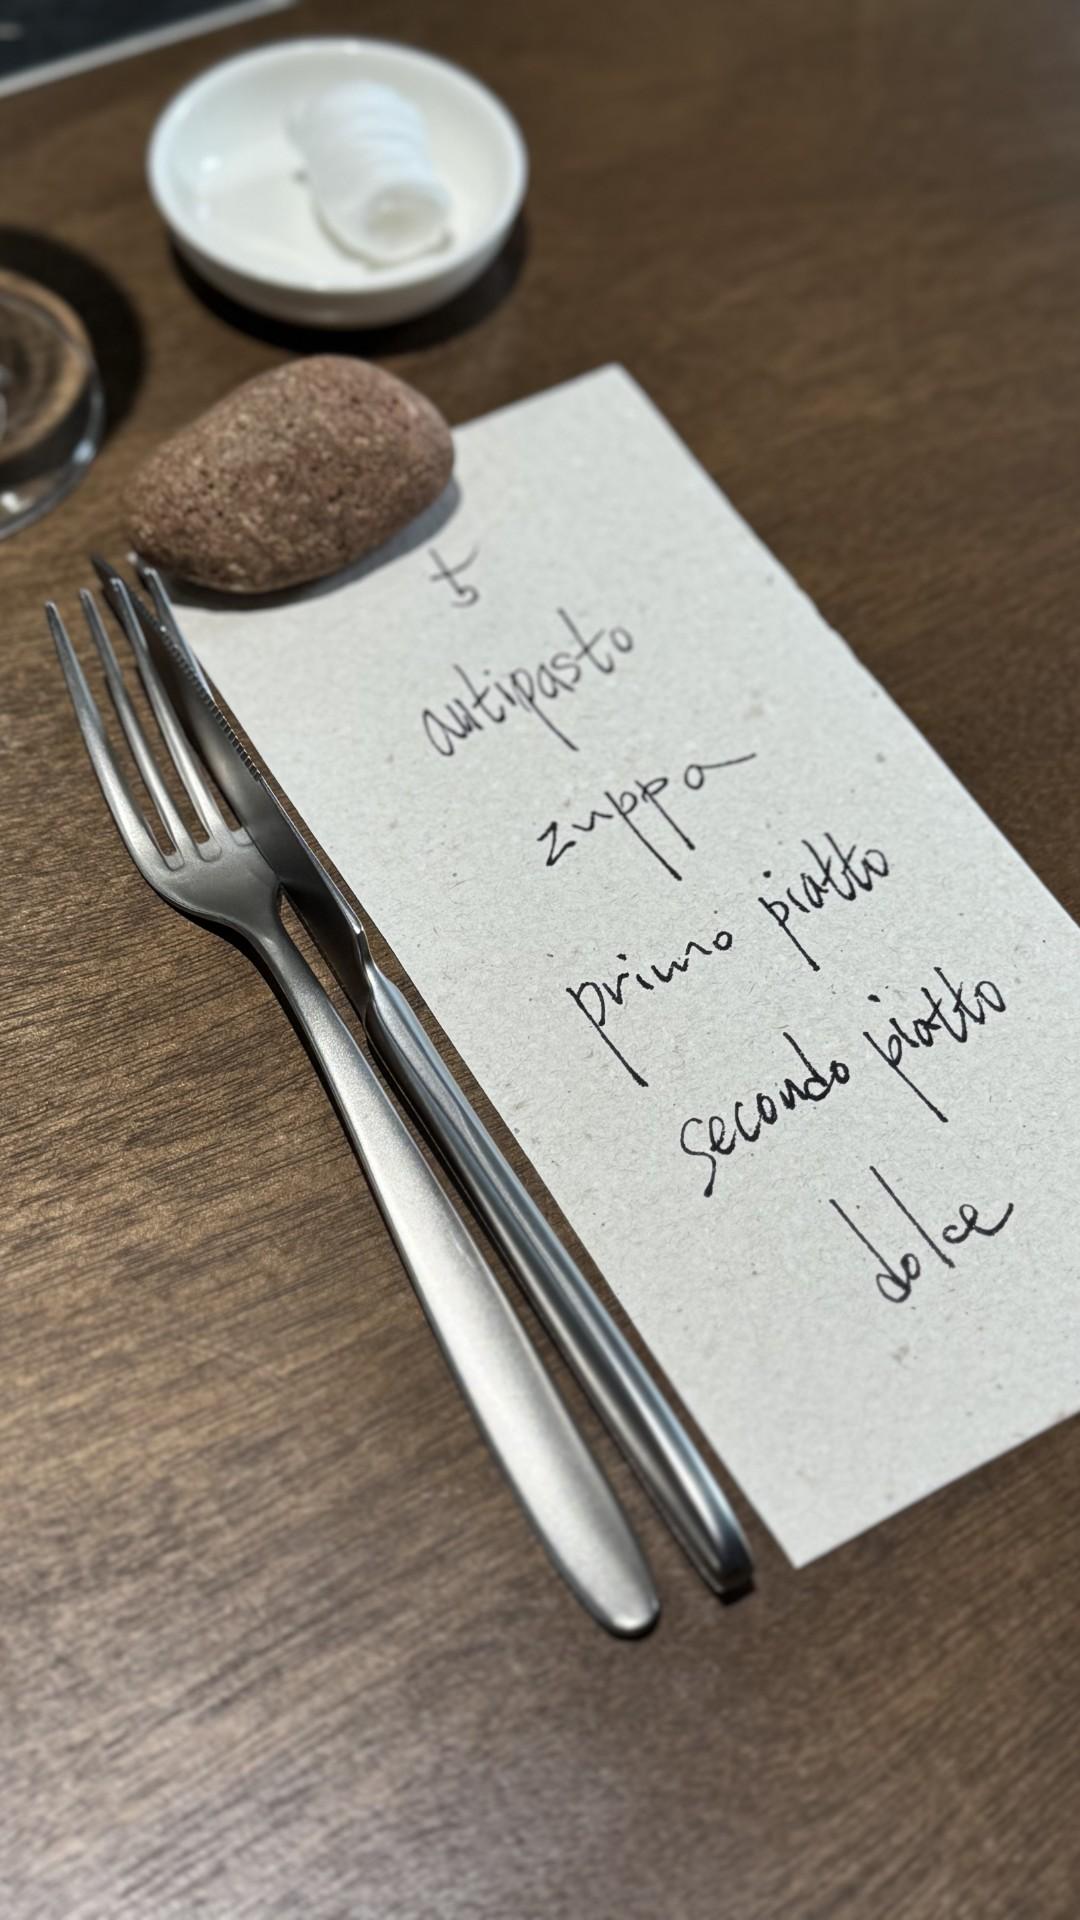 5
antipasto
zuppa
primo piatto
secondo piatto
dolce